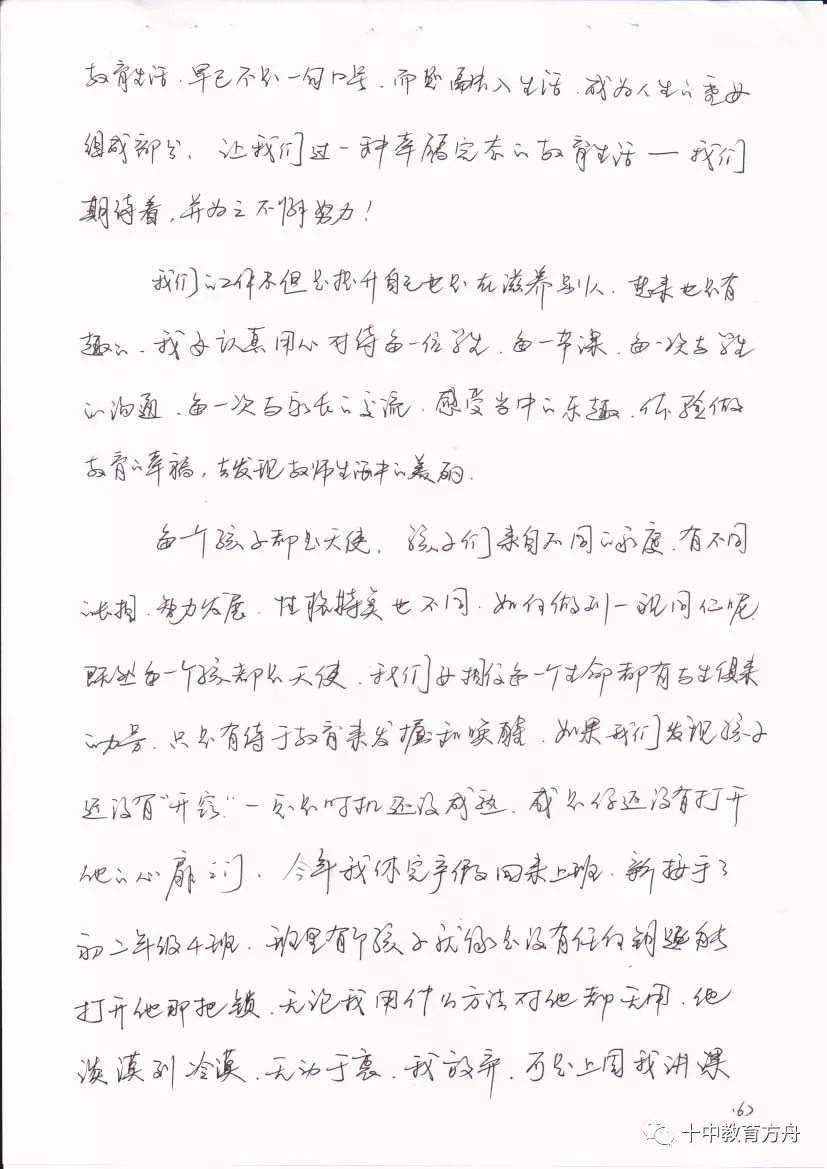 教育生活,早已不是一句口号,而是融入生活,成为人生的重要
组成部分、让我们过一种幸福完整的教育生活—我们
期待着,并为之不懈努力!
我们的工作不但是提升自己也是在滋养别人,想来也是有
趣的,我要认真用心对待每一位学生,每一节课,每一次与学生
的沟通,每一次与家长的交流,感受当中的乐趣,体验做
教育的幸福,去发现教师生活中的美丽.
每一个孩子都是天使,孩子们来自不同的家庭,有不同
的长相,智力发展,性格特点也不同,如何做到一视同仁呢,
既然每一个孩都是天使,我们要相信每一个生命都有与生俱来
的,只是有待于教育来发掘和唤醒,如果我们发现孩子
还没有"开窍"一定是时机还没成熟,或是你还没有打开
他的心扉之门,今年我休完产假回来上班,新接手了
初二年级4班,班里有个孩子就像是没有任何钥匙能
打开他那把锁,无论我用什么方法对他都无用,他
淡漠到冷漠,无动于衷,我放弃,可是上周我讲课
(6)
十中教育方舟